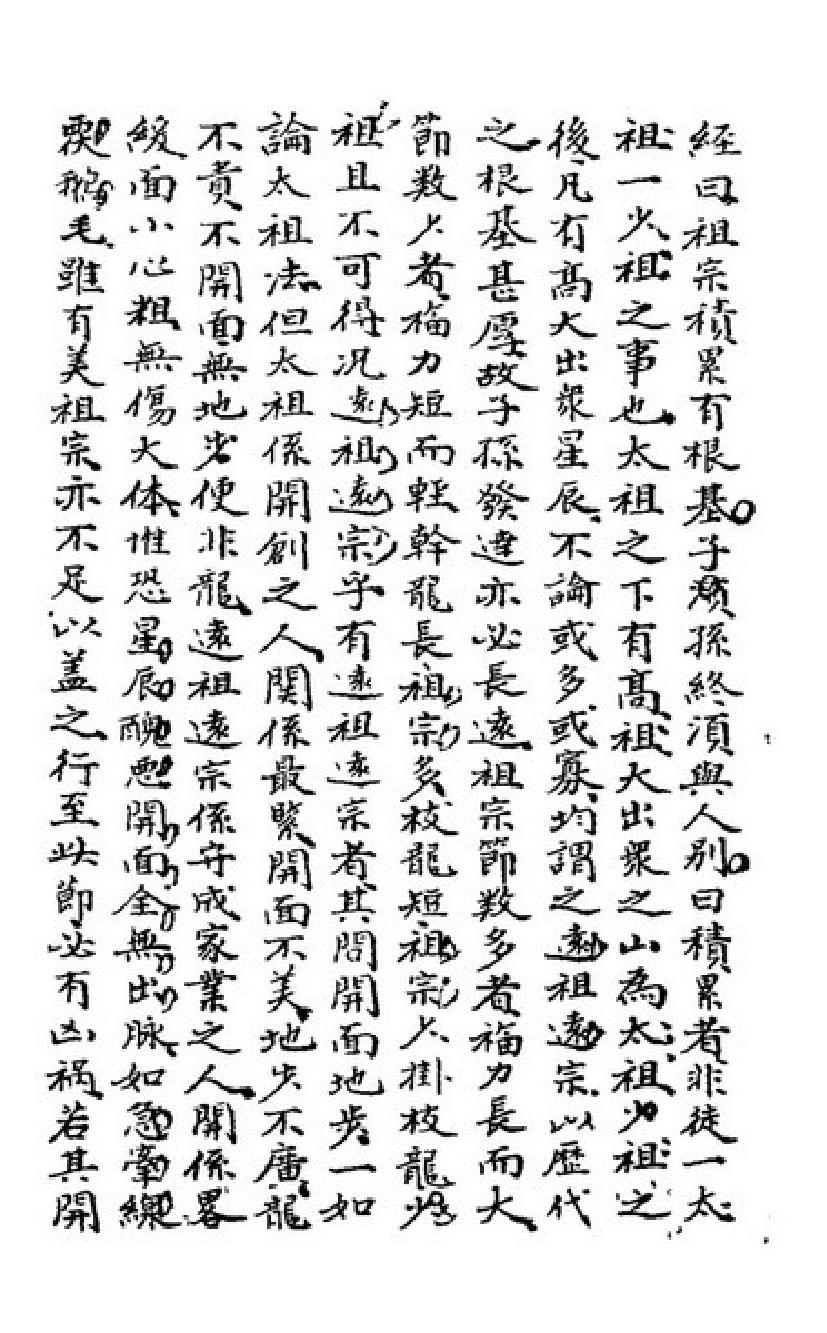 經曰祖宗積累有根基子須孫終須與人別曰積累者非徒一太
祖一少祖之事也太祖之下有高祖大出衆之山為太祖少祖之
後凡有高大出衆星辰不論或多或寡均謂之遠祖遠宗以歷代
之根基甚厚故子孫發達亦必長遠祖宗節数多者福力長而大
節数少者福力短而輕幹龍長祖宗多枝龍短祖宗少掛枝龍少
祖且不可得况遠祖遠宗乎有遠祖遠宗者其間開面地步一如
論太祖法但太祖係開創之人関係最緊開面不美地步不廣龍
不貴不開面無地步便非龍遠祖遠宗係守成家業之人関係畧
緩面小心粗無傷大体惟恐星辰醜惡開面全無出脉如急牽線
輭鵝毛雖有美祖宗亦不足以盖之行至此節必有凶禍若其開